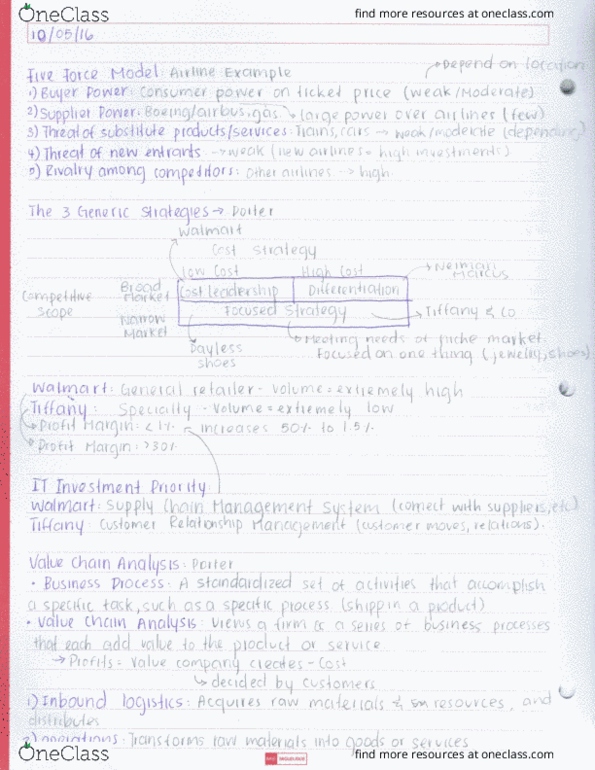 OneClass find more resources at oneclass.com
10/05/16
Five Force Model: Airline Example
Depend on location
1) Buyer Power: Consumer power on ticket price (weak/Moderate)
2) Supplier Power: Boeing/airbus, gas → large power over airlines (few)
3) Threat of substitute products/services: Trains, cars → weak/moderate (depending)
4) Threat of new entrants → weak (new airlines = high investments)
5) Rivalry among competitors: Other airlines → high
The 3 Generic Strategies → Porter
Walmart
Cost Strategy
Low Cost High Cost
Neiman Marcus
Competitive scope
Broad Market
Cost leadership Differentiation
Narrow Market
Focused Strategy
Tiffany & Co
Payless shoes
Meeting needs of niche market.
Focused on one thing (jewels, shoes)
Walmart: General retailer - volume = extremely high
Tiffany: Specialty - volume = extremely low
Profit Margin: <1% increases 50% to 1.5%
Profit Margin: >30%
IT Investment Priority:
Walmart: Supply Chain Management System (connect with suppliers, etc)
Tiffany: Customer Relationship Management (customer moves, relations).
Value Chain Analysis: Porter
• Business Process: A standardized set of activities that accomplish
a specific task, such as a specific process (shippin a product)
• Value Chain Analysis: Views a firm as a series of business processes
that each add value to the product or service
→ Profits = Value company creates - Cost
decided by customers
1) Inbound logistics: Acquires raw materials & resources, and
distributes
2) operations: Transforms raw materials into goods or services
OneClass find more resources at oneclass.com